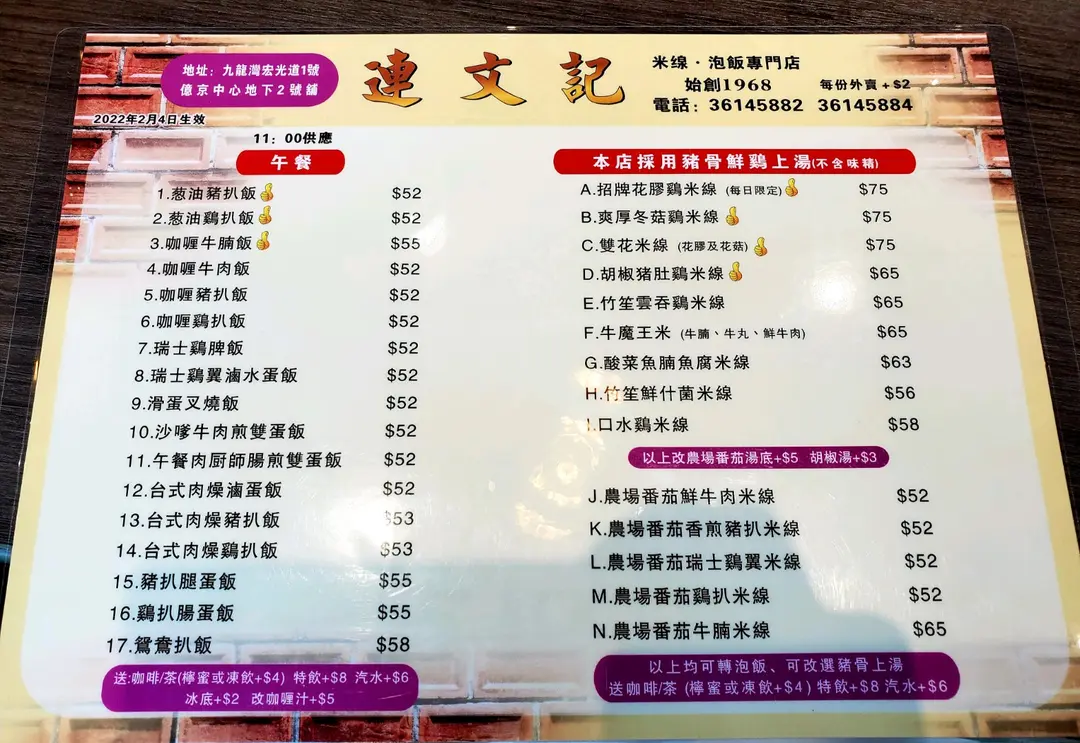 地址：九龍灣宏光道1號
億京中心地下2號舖
連文記
米線·泡飯專門店
始創1968
每份外賣+$2
電話：36145882 36145884
2022年2月4日生效
11：00供應
午餐
1.葱油豬扒飯 $52
2.葱油鷄扒飯 $52
3.咖喱牛腩飯 $55
4.咖喱牛肉飯 $52
5.咖喱豬扒飯 $52
6.咖喱鷄扒飯 $52
7.瑞士鷄髀飯 $52
8.瑞士鷄翼滷水蛋飯 $52
9.滑蛋叉燒飯 $52
10.沙嗲牛肉煎雙蛋飯 $52
11.午餐肉厨師腸煎雙蛋飯 $52
12.台式肉燥滷蛋飯 $52
13.台式肉燥豬扒飯 $53
14.台式肉燥鷄扒飯 $53
15.豬扒腿蛋飯 $55
16.鷄扒腸蛋飯 $55
17.鴛鴦扒飯 $58
送:咖啡/茶(檸蜜或凍飲+$4) 特飲+$8 汽水+$6
冰底+$2 改咖喱汁+$5
本店採用豬骨鮮鷄上湯(不含味精)
A.招牌花膠鷄米線 (每日限定) $75
B.爽厚冬菇鷄米線 $75
C.雙花米線 (花膠及花菇) $75
D.胡椒豬肚鷄米線 $65
E.竹笙雲吞鷄米線 $65
F.牛魔王米 (牛腩、牛丸、鮮牛肉) $65
G.酸菜魚腩魚腐米線 $63
H.竹笙鮮什菌米線 $56
I.口水鷄米線 $58
以上改農場番茄湯底+$5 胡椒湯+$3
J.農場番茄鮮牛肉米線 $52
K.農場番茄香煎豬扒米線 $52
L.農場番茄瑞士鷄翼米線 $52
M.農場番茄鷄扒米線 $52
N.農場番茄牛腩米線 $65
以上均可轉泡飯、可改選豬骨上湯
送咖啡/茶 (檸蜜或凍飲+$4) 特飲+$8 汽水+$6